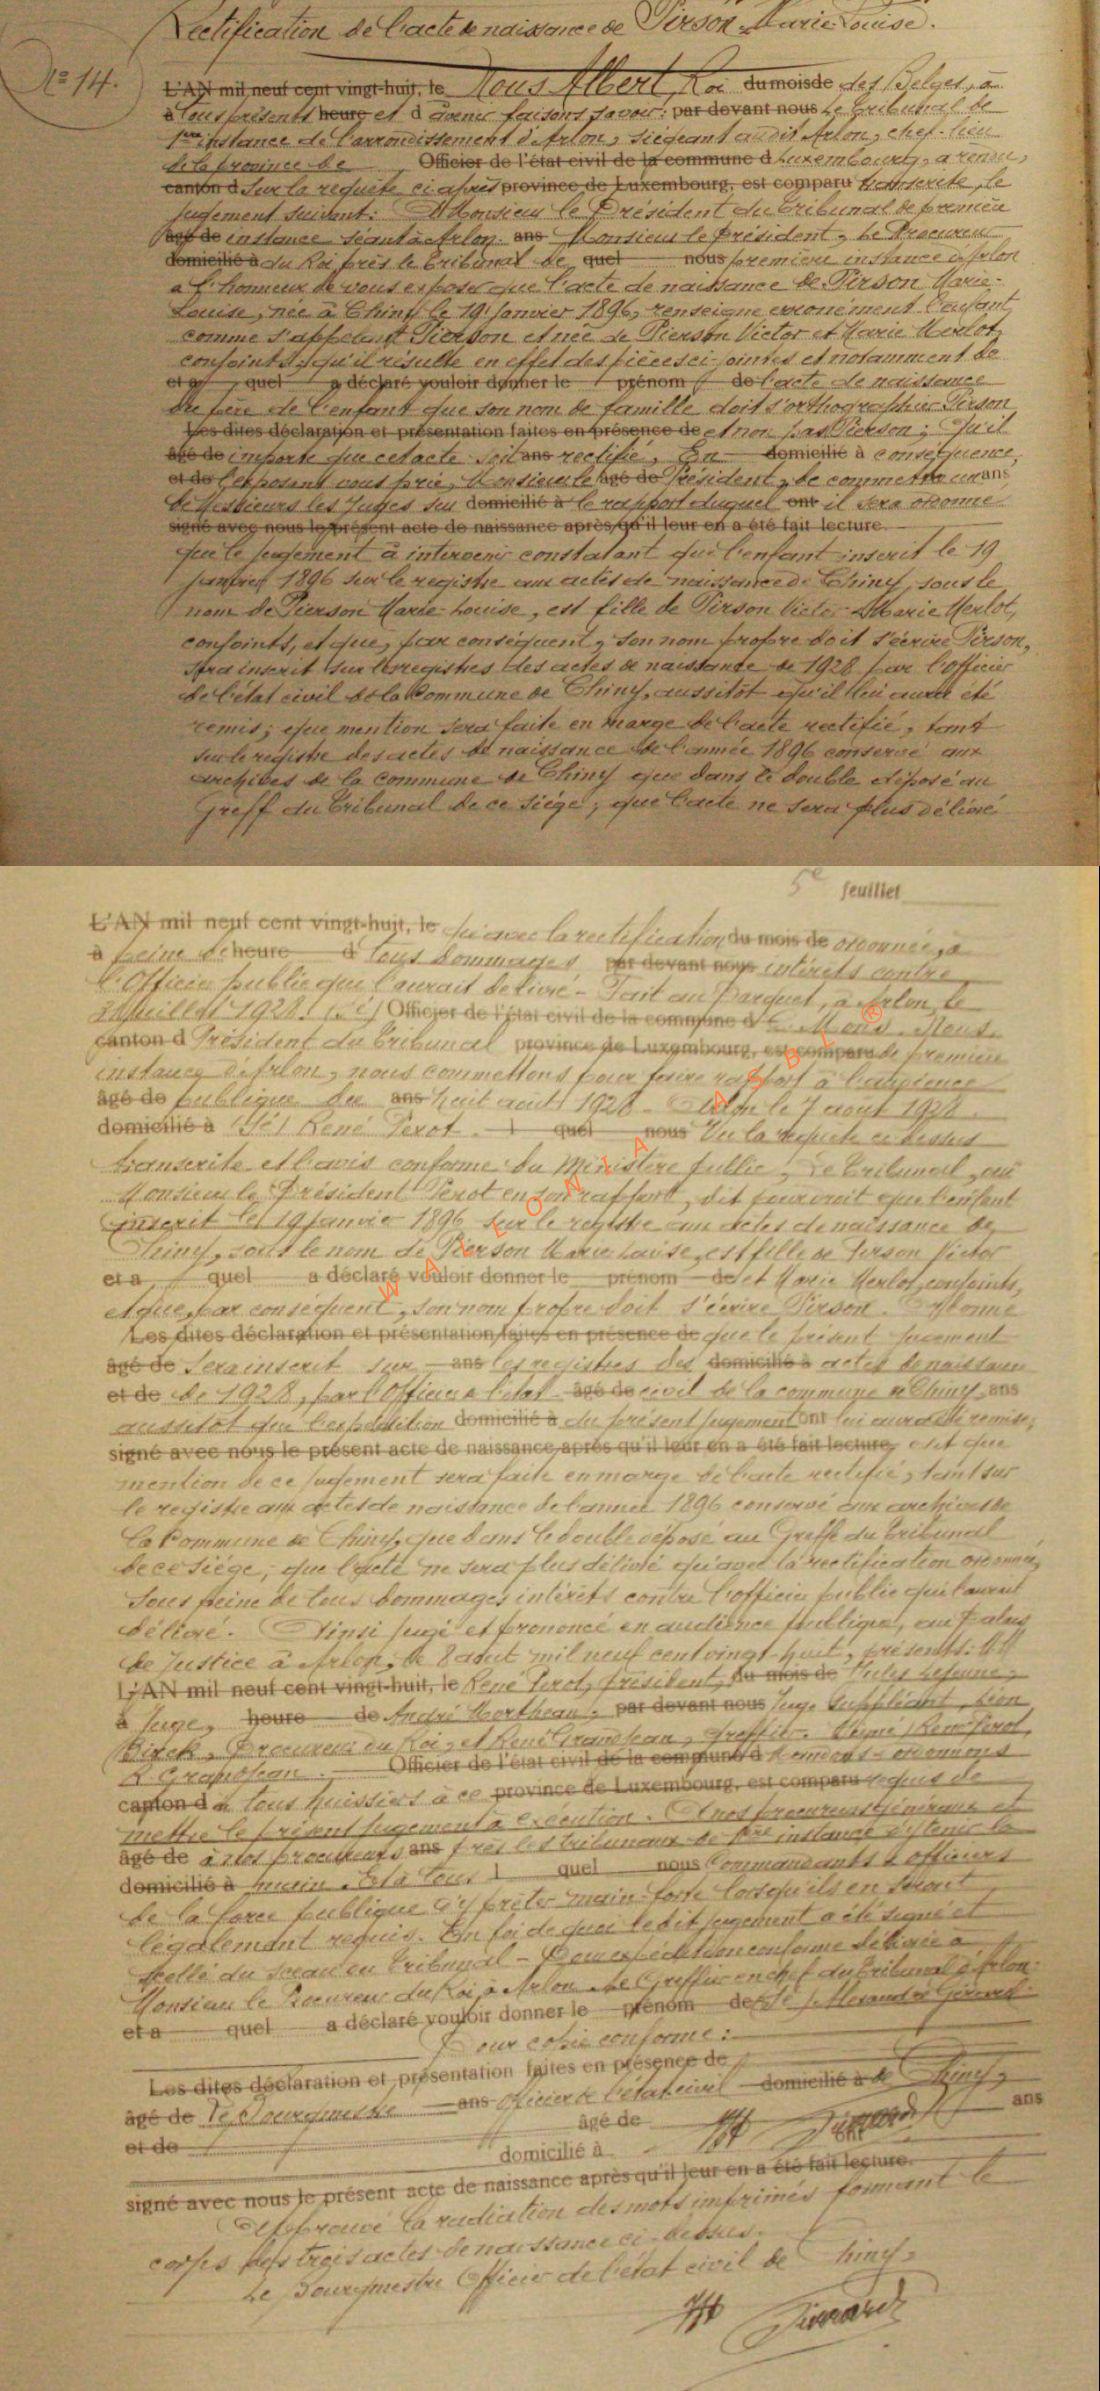 Rectification de l'acte de naissance de Pirson Marie-Louise.
N° 14.
L'AN mil neuf cent vingt-huit, le Nous Albert, Roi du mois de des Belges, à
à tous présents heure et d à venir faisons savoir: par devant nous Le tribunal de
1ère instance de l'arrondissement d'Arlon, siégeant audit Arlon, chef-lieu
de la province de Officier de l'état civil de la commune d Luxembourg, a rendu,
canton d sur la requête ci-après province de Luxembourg, est comparu transcrite, le
jugement suivant: A Monsieur le Président du tribunal de première
âgé de instance séant à Arlon. ans Monsieur le Président, Le Procureur
domicilié à du Roi près le tribunal de quel nous première instance d'Arlon
a l'honneur de vous exposer que l'acte de naissance de Pirson Marie-
Louise, née à Chiny le 19 janvier 1896, renseigne erronément l'enfant
comme s'appelant Pierson et née de Pierson Victor et Marie Merlot,
conjoints; qu'il résulte en effet des pièces ci-jointes et notamment de
et a quel a déclaré vouloir donner le prénom de l'acte de naissance
du père de l'enfant que son nom de famille doit s'orthographier Pirson
Les dites déclaration et présentation faites en présence de et non pas Pierson; Qu'il
âgé de importe que cet acte soit ans rectifié, En domicilié à conséquence,
et de l'exposant vous prie, Monsieur le âgé de Président, de commettre un ans
de Messieurs les Juges sur domicilié à le rapport duquel ont il sera ordonné
signé avec nous le présent acte de naissance après qu'il leur en a été fait lecture.
que le jugement à intervenir constatant que l'enfant inscrit le 19
janvier 1896 sur le registre aux actes de naissance de Chiny, sous le
nom de Pierson Marie-Louise, est fille de Pirson Victor & Marie Merlot,
conjoints, et que, par conséquent, son nom propre doit s'écrire Pirson,
sera inscrit sur les registres des actes de naissance de 1928 par l'officier
de l'état civil de la Commune de Chiny, aussitôt qu'il lui aura été
remis; que mention sera faite en marge de l'acte rectifié, tant
sur le registre des actes de naissance de l'année 1896 conservé aux
archives de la commune de Chiny que dans le double déposé au
Greff du tribunal de ce siège; que l'acte ne sera plus délivré
5e feuillet
L'AN mil neuf cent vingt-huit, le qu'avec la rectification du mois de ordonnée, à
à peine de heure d tous dommages par devant nous intérêts contre
l'Officier public qui l'aurait délivré - Fait au Parquet, à Arlon, le
juillet 1928. (Sé) Officier de l'état civil de la commune d Nous,
canton d Président du tribunal province de Luxembourg, est comparu de première
instance d'Arlon, nous commettons pour faire rapport à l'audience
âgé de publique du ans huit août 1928 - Arlon le 7 août 1928.
domicilié à (Sé) René Perot. l quel nous Vu la requête ci-dessus
transcrite et l'avis conforme du Ministère public, Le tribunal, ouï
Monsieur le Président Perot en son rapport, dit pour droit que l'enfant
inscrit le 19 janvier 1896 sur le registre aux actes de naissance de
Chiny, sous le nom de Pierson Marie Louise, est fille de Pirson Victor
et a quel a déclaré vouloir donner le prénom de et Marie Merlot, conjoints,
et que, par conséquent, son nom propre doit s'écrire Pirson. Ordonne
Les dites déclaration et présentation faites en présence de que le présent jugement
âgé de sera inscrit sur ans les registres des domicilié à actes de naissance
et de de 1928, par l'Officier de l'état âgé de civil de la commune de Chiny ans
aussitôt que l'expédition domicilié à du présent jugement ont lui aura été remise;
signé avec nous le présent acte de naissance, après qu'il leur en a été fait lecture, que
mention de ce jugement sera faite en marge de l'acte rectifié, tant sur
le registre aux actes de naissance de l'année 1896 conservé aux archives de
la Commune de Chiny, que dans le double déposé au Greffe du tribunal
de ce siège; que l'acte ne sera plus délivré qu'avec la rectification ordonnée,
sous peine de tous dommages intérêts contre l'officier public qui l'aurait
délivré. Ainsi jugé et prononcé en audience publique, au Palais
de Justice à Arlon, le 8 août mil neuf cent vingt-huit, présents: MM
L'AN mil neuf cent vingt-huit, le René Perot, président, du mois de Jules Lejeune,
à Juge, heure de André par devant nous Juge Suppléant, Léon
Procureur du Roi, et René Grandjean, Greffier. Signé) René Perot,
R. Grandjean. Officier de l'état civil de la commune d Mandons & ordonnons
canton d à tous huissiers à ce province de Luxembourg, est comparu requis de
mettre le présent jugement à exécution. A nos procureurs généraux et
âgé de à nos procureurs ans près les tribunaux de 1ère instance d'y tenir la
domicilié à main. Et à tous l quel nous Commandants & officiers
de la force publique d'y prêter main-forte lorsqu'ils en seront
légalement requis. En foi de quoi le dit jugement a été signé et
scellé du sceau du tribunal - Pour expédition conforme délivrée à
Monsieur le Procureur du Roi à Arlon. Le Greffier en chef du tribunal d'Arlon.
et a quel a déclaré vouloir donner le prénom de
Pour copie conforme:
Les dites déclaration et présentation faites en présence de
âgé de Le Bourgmestre ans Officier de l'état civil domicilié à de Chiny,
et de âgé de ans
domicilié à
signé avec nous le présent acte de naissance après qu'il leur en a été fait lecture.
Approuvé la radiation des mots imprimés formant le
corps des trois actes de naissance ci-dessus.
Le Bourgmestre Officier de l'état civil de Chiny,
WALLONIA ASBL ®